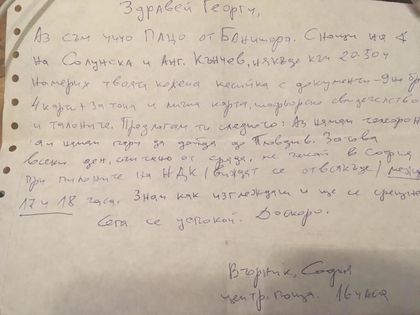 Здравей Георги,
Аз съм чичо Пацо от Банишора. Снощи на ∢
на Солунска и Анг. Кънчев, някъде към 20.30ч
намерих твоята кожена кесийка с документи - 9 бр
4 карти + за тока и лична карта, шофьорско свидетелство
и талоните. Предлагам ти следното: Аз нямам телефон
а и нямам пари за дойда до Пловдив. Затова
всеки ден, считано от сряда, те чакам в София
при пилоните на НДК /виждат се отвсякъде/ между
17 и 18 часа. Знам как изглеждаш и ще се срещнем
Сега се успокой. Доскоро.
Вторник, София
центр. поща. 16 часа